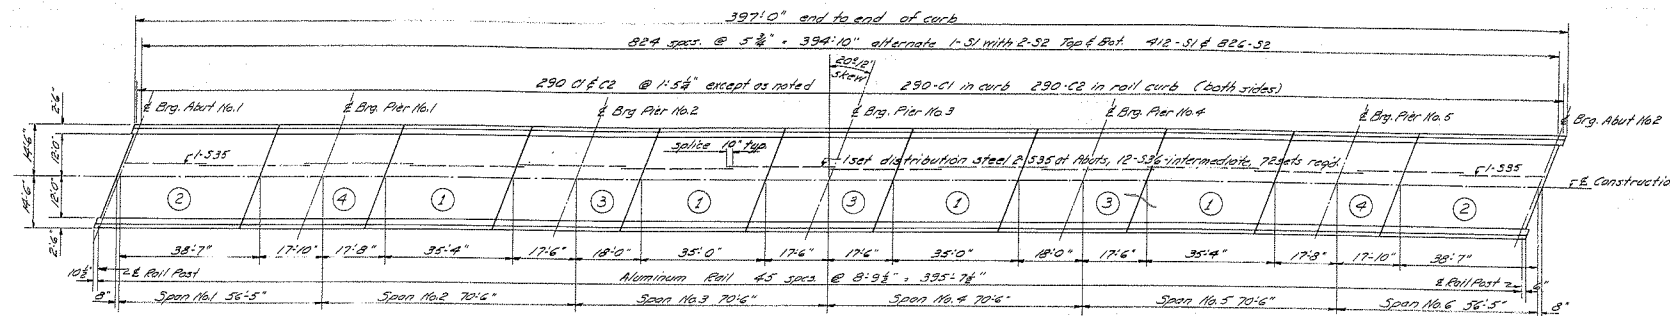 397'-0" end to end of curb
824 spcs. @ 5 3/4" = 394'-10" alternate 1-S1 with 2-S2 Top & Bot. 412-S1 & 826-S2
20°12' skew
290 C1 & C2 @ 1'-5 1/4" except as noted 290-C1 in curb 290-C2 in rail curb (both sides)
℄ Brg. Abut No.1
℄ Brg. Pier No.1
℄ Brg Pier No.2
℄ Brg. Pier No.3
℄ Brg. Pier No.4
℄ Brg. Pier No.5
℄ Brg. Abut No2
2'-6"
14'-6"
12'-0"
12'-0"
14'-6"
2'-6"
1-S35
splice 10" typ.
1 set distribution steel 2-S35 at Abuts, 12-S36-intermediate, 72 sets reqd.
1-S35
℄ Constructio
2 4 1 3 1 3 1 3 1 4 2
38'-7" 17'-10" 17'-8" 35'-4" 17'-6" 18'-0" 35'-0" 17'-6" 17'-6" 35'-0" 18'-0" 17'-6" 35'-4" 17'-8" 17'-10" 38'-7"
10 1/2"
℄ Rail Post
Aluminum Rail 45 spcs. @ 8'-9 1/2" = 395'-7 1/2"
℄ Rail Post
6"
8" Span No.1 56'-5" Span No.2 70'-6" Span No.3 70'-6" Span No.4 70'-6" Span No.5 70'-6" Span No.6 56'-5" 8"